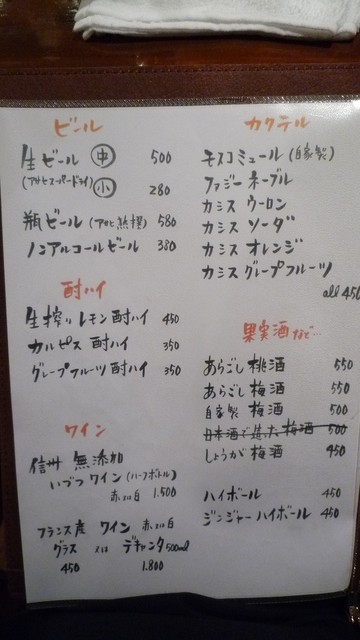 ビール
生ビール 中 500
(アサヒスーパードライ) 小 280
瓶ビール (アサヒ熟撰) 580
ノンアルコールビール 380
酎ハイ
生搾りレモン酎ハイ 450
カルピス酎ハイ 350
グレープフルーツ酎ハイ 350
ワイン
信州 無添加
いづつワイン (ハーフボトル)
赤 白 1.500
フランス産 ワイン 赤 白
グラス 又は デキャンタ 500ml
450 1.800
カクテル
モスコミュール (自家製)
ファジーネーブル
カシス ウーロン
カシス ソーダ
カシス オレンジ
カシス グレープフルーツ
all 450
果実酒など
あらごし 桃酒 550
あらごし 梅酒 550
自家製 梅酒 500
日本酒で造った梅酒 500
しょうが梅酒 450
ハイボール 450
ジンジャーハイボール 450